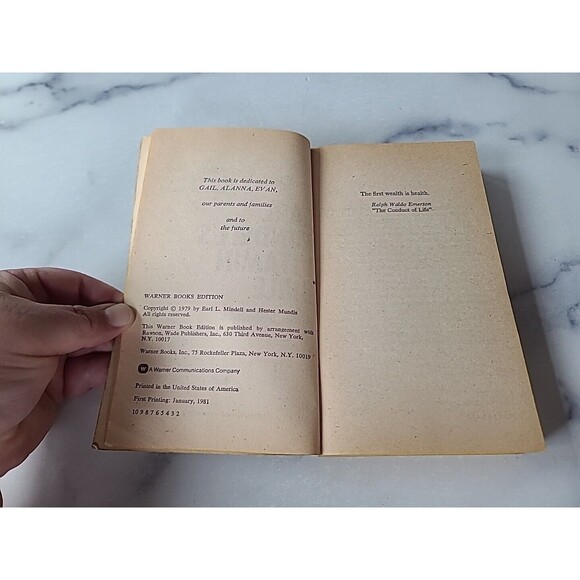 This book is dedicated to
GAIL, ALANNA, EVAN,
our parents and families
and to
the future
WARNER BOOKS EDITION
Copyright © 1979 by Earl L. Mindell and Hester Mundis
All rights reserved.
This Warner Book Edition is published by arrangement with
Rawson, Wade Publishers, Inc., 630 Third Avenue, New York,
N.Y. 10017
Warner Books, Inc., 75 Rockefeller Plaza, New York, N.Y. 10019
W A Warner Communications Company
Printed in the United States of America
First Printing: January, 1981
10 9 8 7 6 5 4 3 2
The first wealth is health.
Ralph Waldo Emerson
"The Conduct of Life"